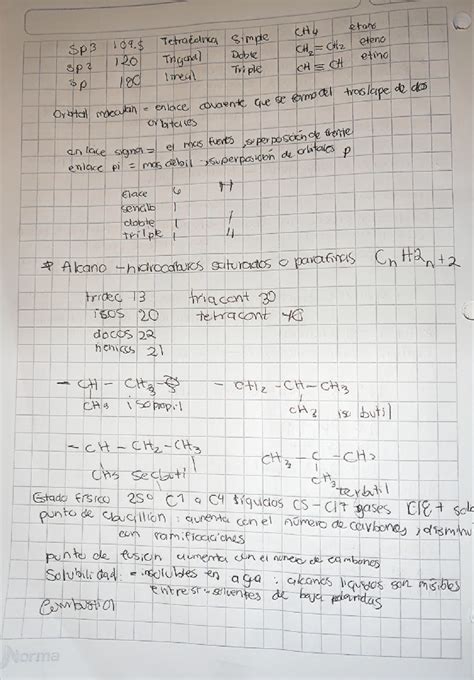 sp3 109.5 Tetraédrica Simple CH4 etano
sp2 120 Trigonal Doble CH2 = CH2 eteno
sp 180 lineal Triple CH ≡ CH etino
Orbital molecular = enlace covalente que se forma del traslape de dos
orbitales
enlace sigma = el mas fuerte, superposición de frente
enlace pi = mas debil, superposición de orbitales p
Elace 6 π
sencillo 1
doble 1 1
triple 1
* Alcano - hidrocarburos saturados o parafinas CnH2n+2
tridec 13 triacont 30
isos 20 tetracont 40
docos 22
henicos 21
- CH - CH3
CH3 isopropil
- CH2 - CH - CH3
CH3 isobutil
- CH - CH2 - CH3
CH3 secbutil
CH3 - C - CH3
CH3 terbutil
Estado físico 25° C1 a C4 liquidos C5 - C17 gases C18 +
punto de ebullición: aumenta con el número de carbonos,
con ramificaciones
punto de fusion aumenta con el número de carbonos
Solubilidad: insolubles en agua: alcanos liquidos son misibles
entre si solventes de baja polaridas
Combustion
Norma